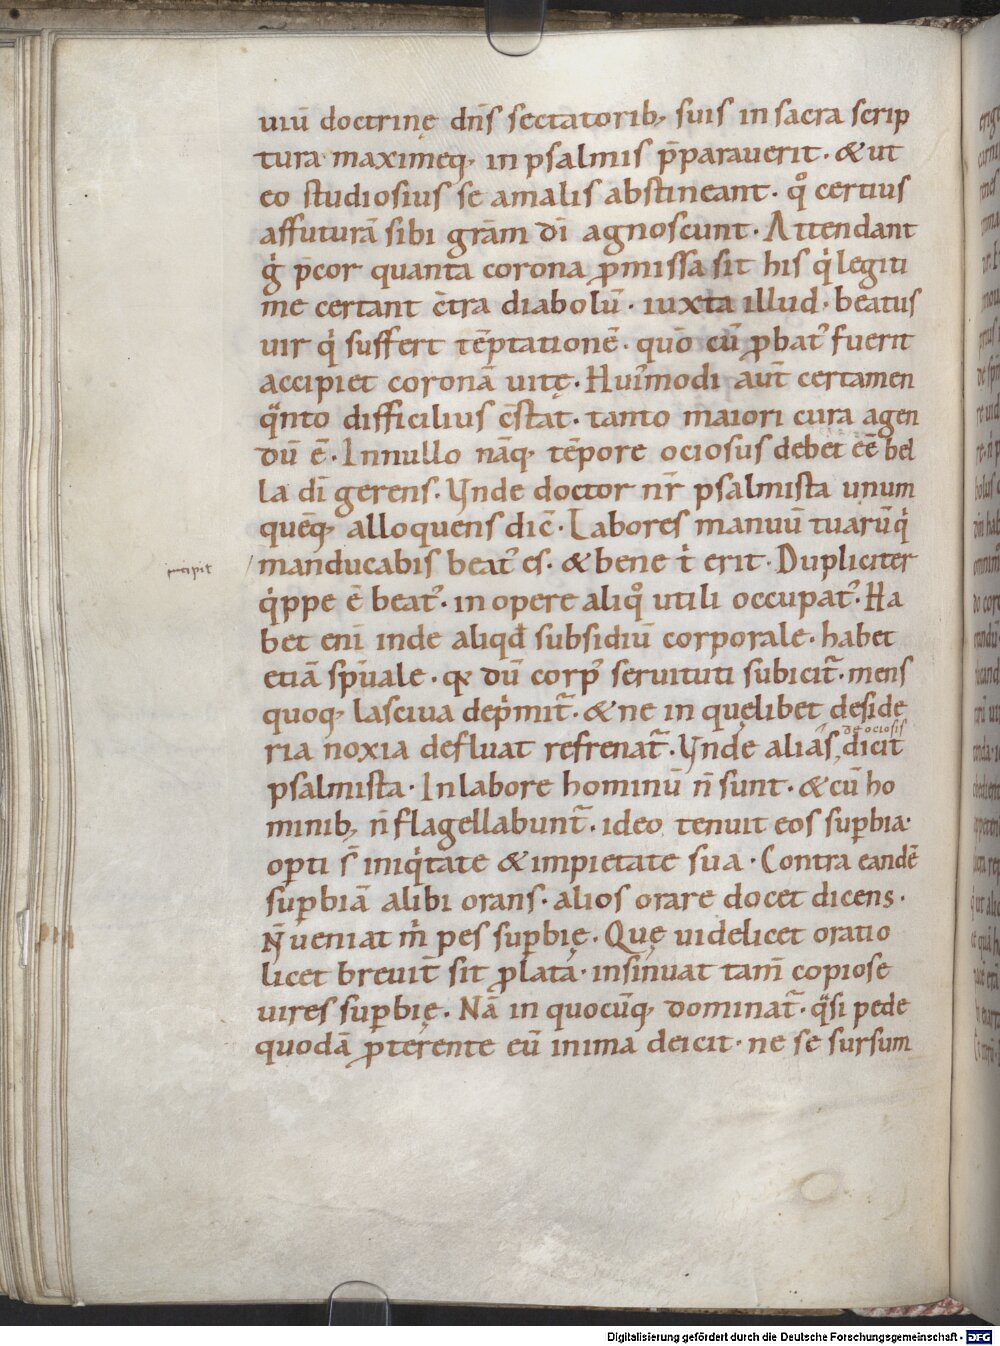 uiū doctrinę dn̄s sectatorib; suis in sacra scrip
tura maximeq; in psalmis p̄parauerit. & ut
eo studiosius se amalis abstineant. q̊ certius
affuturā sibi grām dī agnoscunt. Attendant
g̊ p̄cor quanta corona p̄missa sit his q̇ legiti
me certant c̄tra diabolū. iuxta illud. beatus
uir q̇ suffert tēptationē. quō cū ꝓbat᾽ fuerit
accipiet coronā uitę. Hui᾽modi aut̄ certamen
qͣnto difficilius c̄stat. tanto maiori cura agen
dū ē. In nullo nāq; tēpore ociosus debet eē bel
la dī gerens. Vnde doctor nr̄ psalmista unum
quēq; alloquens dic̄. Labores manuū tuarū q̇
manducabis beat᾽ es. & bene t̊ erit. Dupliciter
q̇ppe ē beat᾽. in opere aliq̊ utili occupat᾽. Ha
bet eni inde aliqd̄ subsidiū corporale. habet
etiā spūale. qa dū corp᾽ seruituti subicit̄. mens
quoq; lasciua deṗmit̄. & ne in quęlibet deside
ria noxia defluat refrenat̄. Vnde alias de ociosis dicit
psalmista. In labore hominū n̄ sunt. & cū ho
minib; n̄ flagellabunt̄. ideo tenuit eos suꝑbia.
opti s̄ iniq̇tate & impietate sua. Contra eandē
suꝑbiā alibi orans. alios orare docet dicens.
N̄ ueniat m̊ pes suꝑbię. Quę uidelicet oratio
licet breuit̄ sit ꝓlata. insinuat tam̄ copiose
uires suꝑbię. Nā in quocūq; dominat̄. qͣsi pede
quodā ꝓterente eū inima deicit. ne se sursum